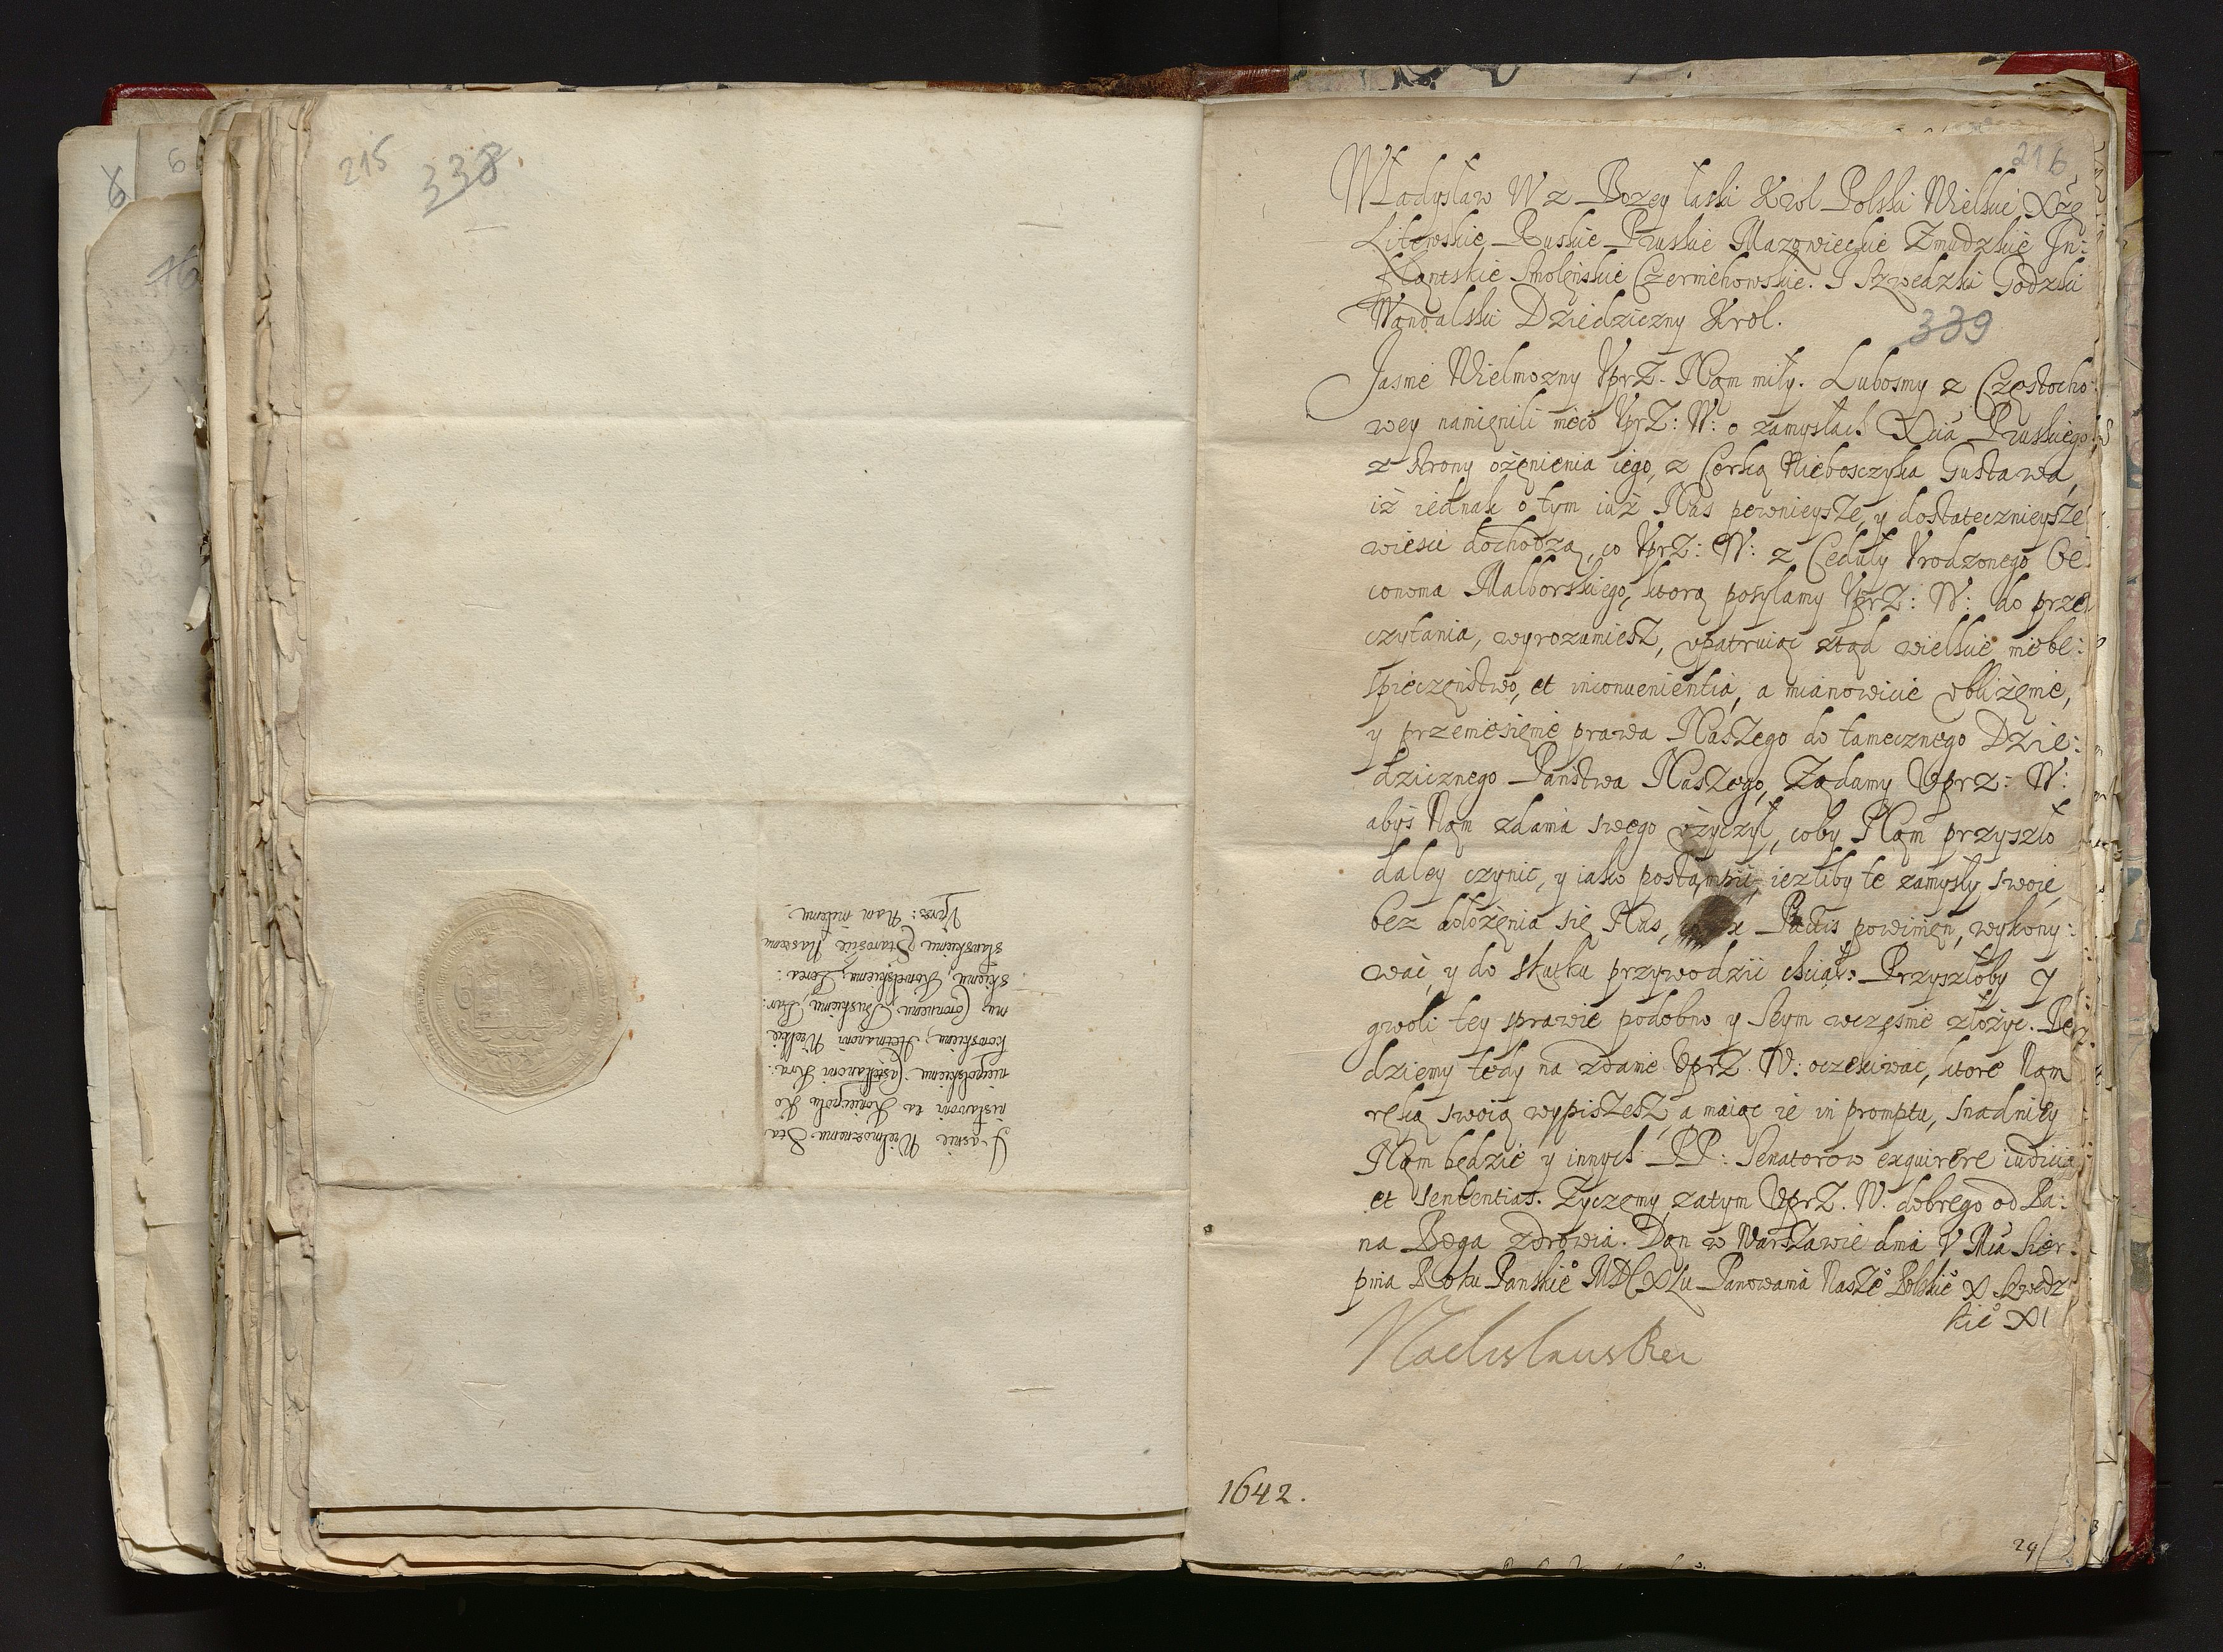 215
338.
Jasnie Wielmoznemu Sta
nisławowi na Koniecpolu Ko
niecpolskiemu Casztellanowi Kra:
kowskiemu, Hetmanowi Wielkie
mu Coronnemu, Buskiemu, Bar:
skiemu, Kowelskiemu, Perea:
sławskiemu Staroscie Naszemu
Vprz: Nam miłemu
216
Władysław IV z Bozey łaski Krol Polski Wielkie Xże
Litewskie Ruskie Pruskie Mazowieckie Zmudzkie In:
flantskie Smolęnskie Czerniehowskie. I Szwedzki Godzki
Wandalski Dziedziczny Krol.
339
Jasnie Wielmozny VprZ. Nam miły. Lubosmy z Częstocho:
wey namięnili nieco VprZ: W: o zamysłach Xcia Pruskiego
z strony ożęnienia iego, z Corką Nieboszczyka Gustawa,
iż iednak o tym iuż Nas pewnieysze, y dostatecznieysze
wiesci dochodzą, co VprZ: W: z Ceduły Vrodzonego Oe
conoma Malborskiego, ktorą posyłamy VprZ: W: do prze
czytania, wyrozumiesz, vpatruiąc ztąd wielkie niebe:
spieczęnstwo, et inconuenientia, a mianowicie vbliżęnie,
y przeniesięnie prawa Naszego do tamecznego Dzie:
dzicznego Panstwa Naszego, Żądamy VprZ: W:
abyś Nam zdania swego vżyczył, coby Nam przyszło
daley czynić, y iako postąmpić, iezliby te zamysły swoie,
bez dołożęnia się Nas, ex Pactis powinięn, wykony:
wać, y do skutku przywodzić chciał. Przyszłoby y
gwoli tey sprawie podobno y Seym wczęsnie złożyc. Bę
dziemy tedy na zdanie VprZ. W: oczekiwac, ktore Nam
ręką swoią wypiszesz, a maiąc ie in promptu, snadniey
Nam będzie y innych PP: Senatorow exquirere iudicia
et sententias. Zyczemy zatym VprZ. W. dobrego od Pa:
na Boga zdrowia. Dan w Warszawie dnia V Mca Sier:
pnia Roku Panskie° MDCXLII Panowania Nasze° Polskie° X Szwedz
kie° XI
Vladislaus Rex
1642.
29